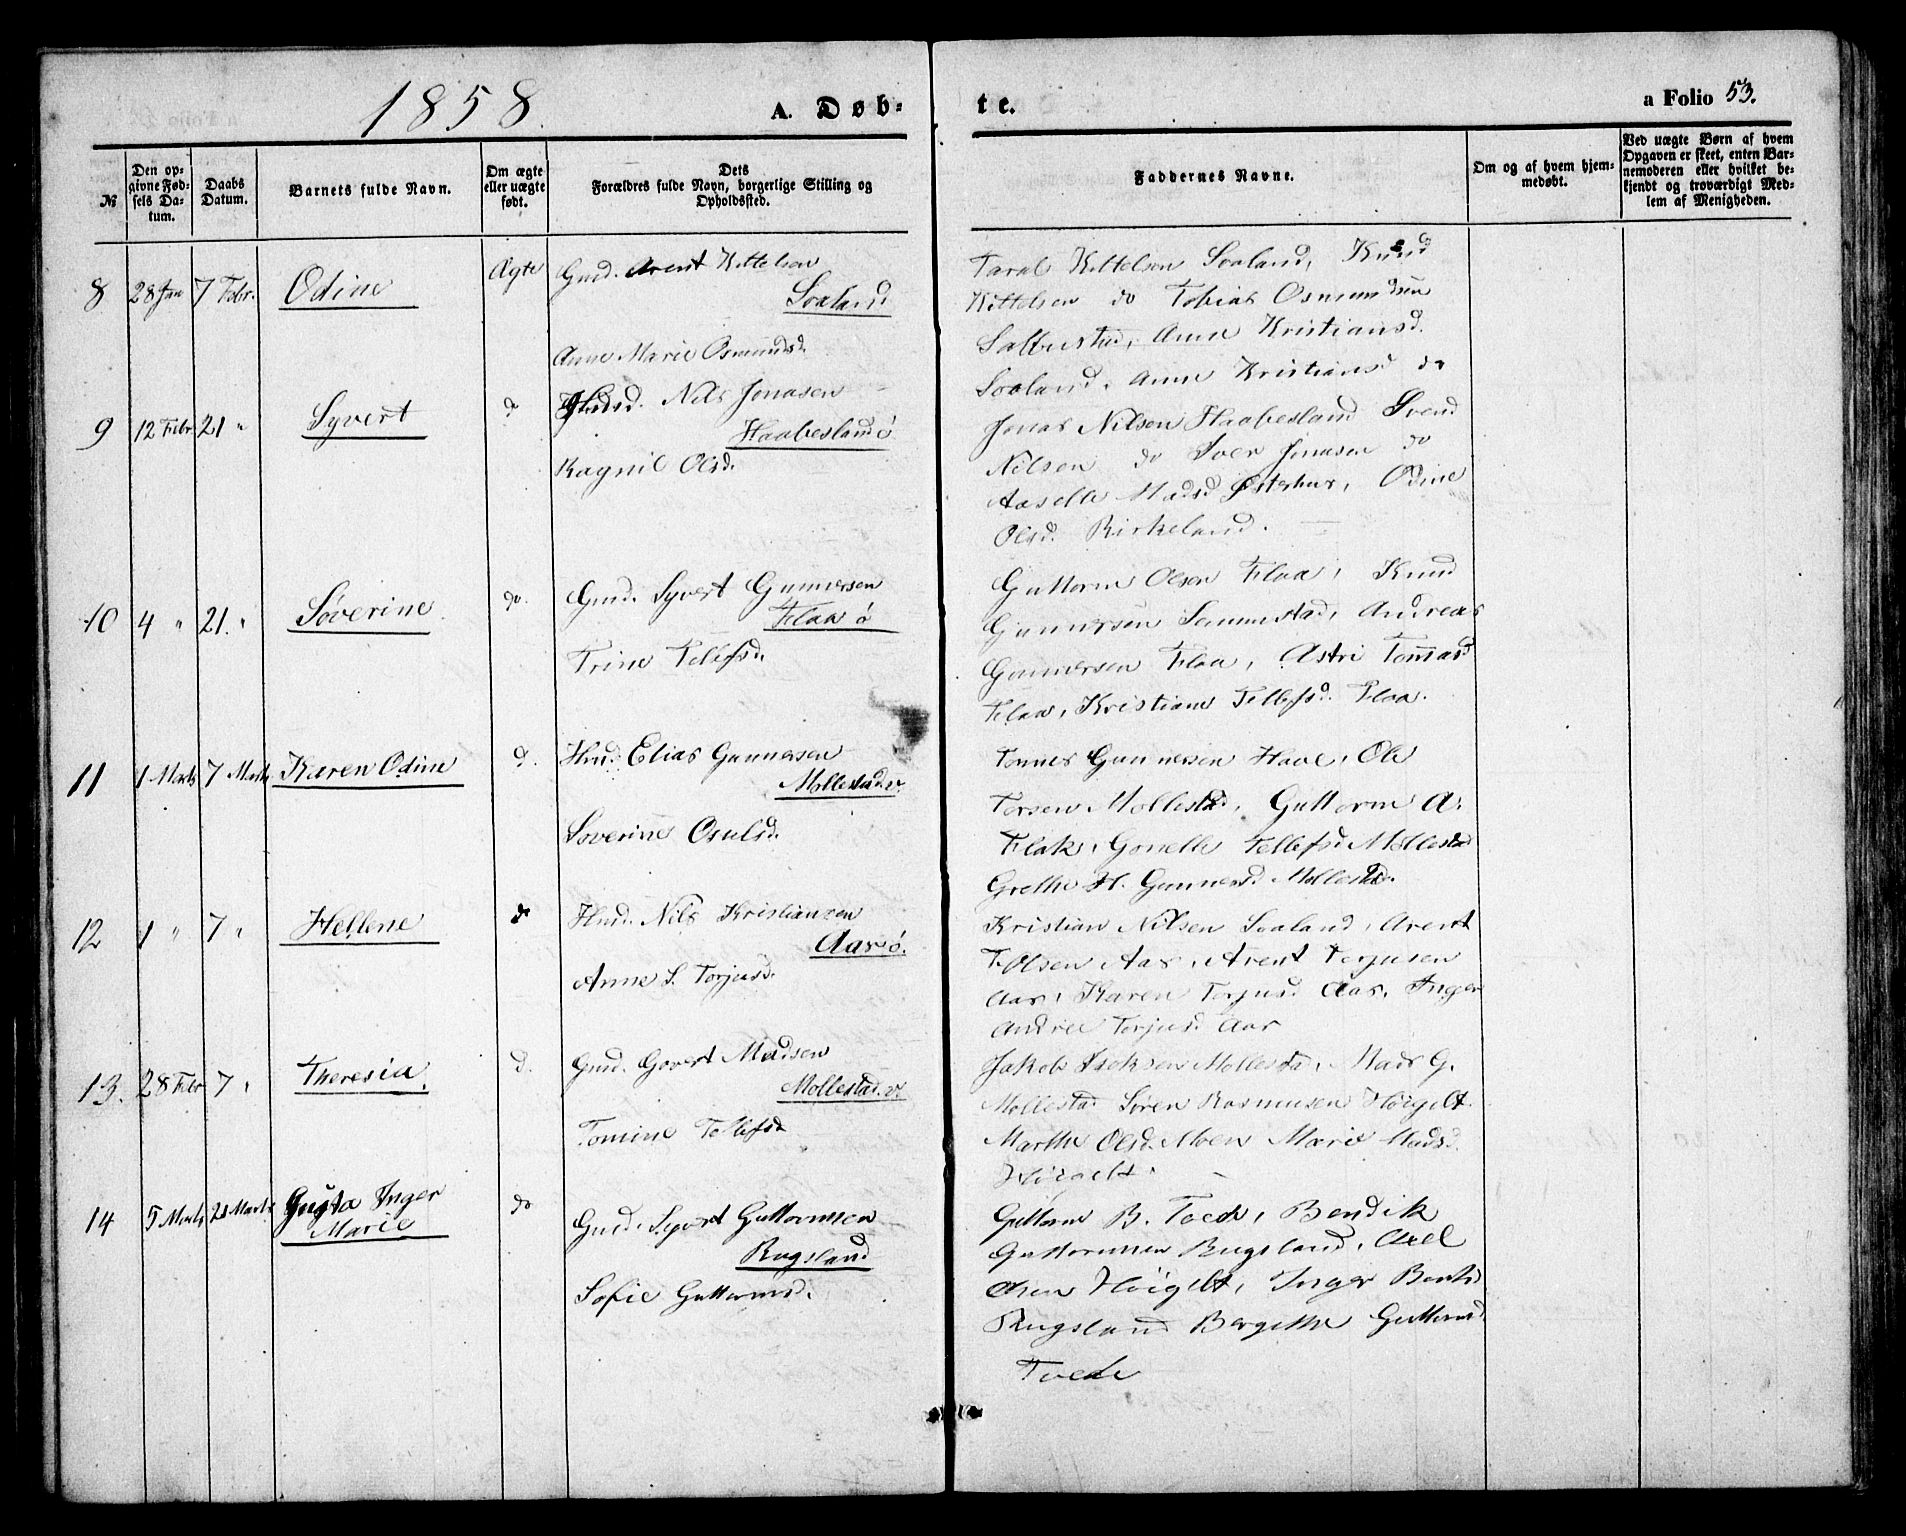 1858.
A. Døb-
te.
a Folio 53.
№
Den op-
givne Fød-
sels Da-
tum.
Daabs
Datum.
Barnets fulde Navn.
Om ægte
eller uægte
født.
Dets
Forældres fulde Navn, borgerlige Stilling og
Opholdssted.
Faddernes Navne.
Om og af hvem hjem-
medøbt.
Ved uægte Børn af hvem
Opgaven er skeet, enten Bar-
nemoderen eller hvilket be-
kjendt og troværdigt Med-
lem af Menigheden.
8 28 Jan 7 Febr. Odine Ægte Gmd. Arent Kittelsen
Soaland
Anne Marie Osmundsd.
Taral Kittelsen Soaland, Knud
Kittelsen do Tobias Osmundsen
Anne Kristiansd.
Soaland, Anne Kristiansd do
9 12 Febr 21 " Syvert d Nils Jonasen
Haabesland ö
Ragnil Olsd.
Jonas Nilsen Haabesland Svend
Nilsen do Iver Jonasen do
Aaselle Madsd Østerhus, Odine
Olsd. Birkeland.
10 4 " 21. " Söverine do. Gmd. Syvert Gunnersen
Flaa ö
Trine Tellefsd.
Guttorm Olsen Flaa, Knud
Gunnersen Senumstad, Andreas
Gunnersen Flaa, Astri Tomasd
Flaa, Kristiane Tellefsd. Flaa.
11 1 Marts 7 Marts Karen Odine d. Hmd. Elias Gunnersen
Mollestad v.
Soverine Osulsd.
Tønnes Gunnersen Have, Ole
Torsen Mollestad, Guttorm A.
Flak, Gonelle Tellefsd Mollestad
Grethe H. Gunnersd. Mollestad.
12 1 " 7 " Hellene d Hmd. Nils Kristiansen
Aas ö.
Anne S. Torjusd.
Kristian Nilsen Soaland, Arent
T. Olsen Aas, Arent Terjusen
Aas, Karen Torjusd. Aas, Inger
Andrea Torjusd. Aas
13. 28 Febr 7 " Theresia. d. Gmd. Govert Madsen
Mollestad. v.
Tomine Tellefsd
Jakob Isaksen Mollestad, Mads G.
Mollestad Sören Rasmusen Höigilt.
Marthe Olsd. Moen Marie Madsd.
Höigilt.
14 5 Marts 21 Marts Gusta Inger
Marie
do Gmd. Syvert Guttormsen
Rugsland
Sofie Guttormsd.
Guttorm B. Tvede, Bendik
Guttormsen Rugsland, Axel
Höigilt, Inger Bentsd
Rugsland Bergithe Guttormsd
Tvede